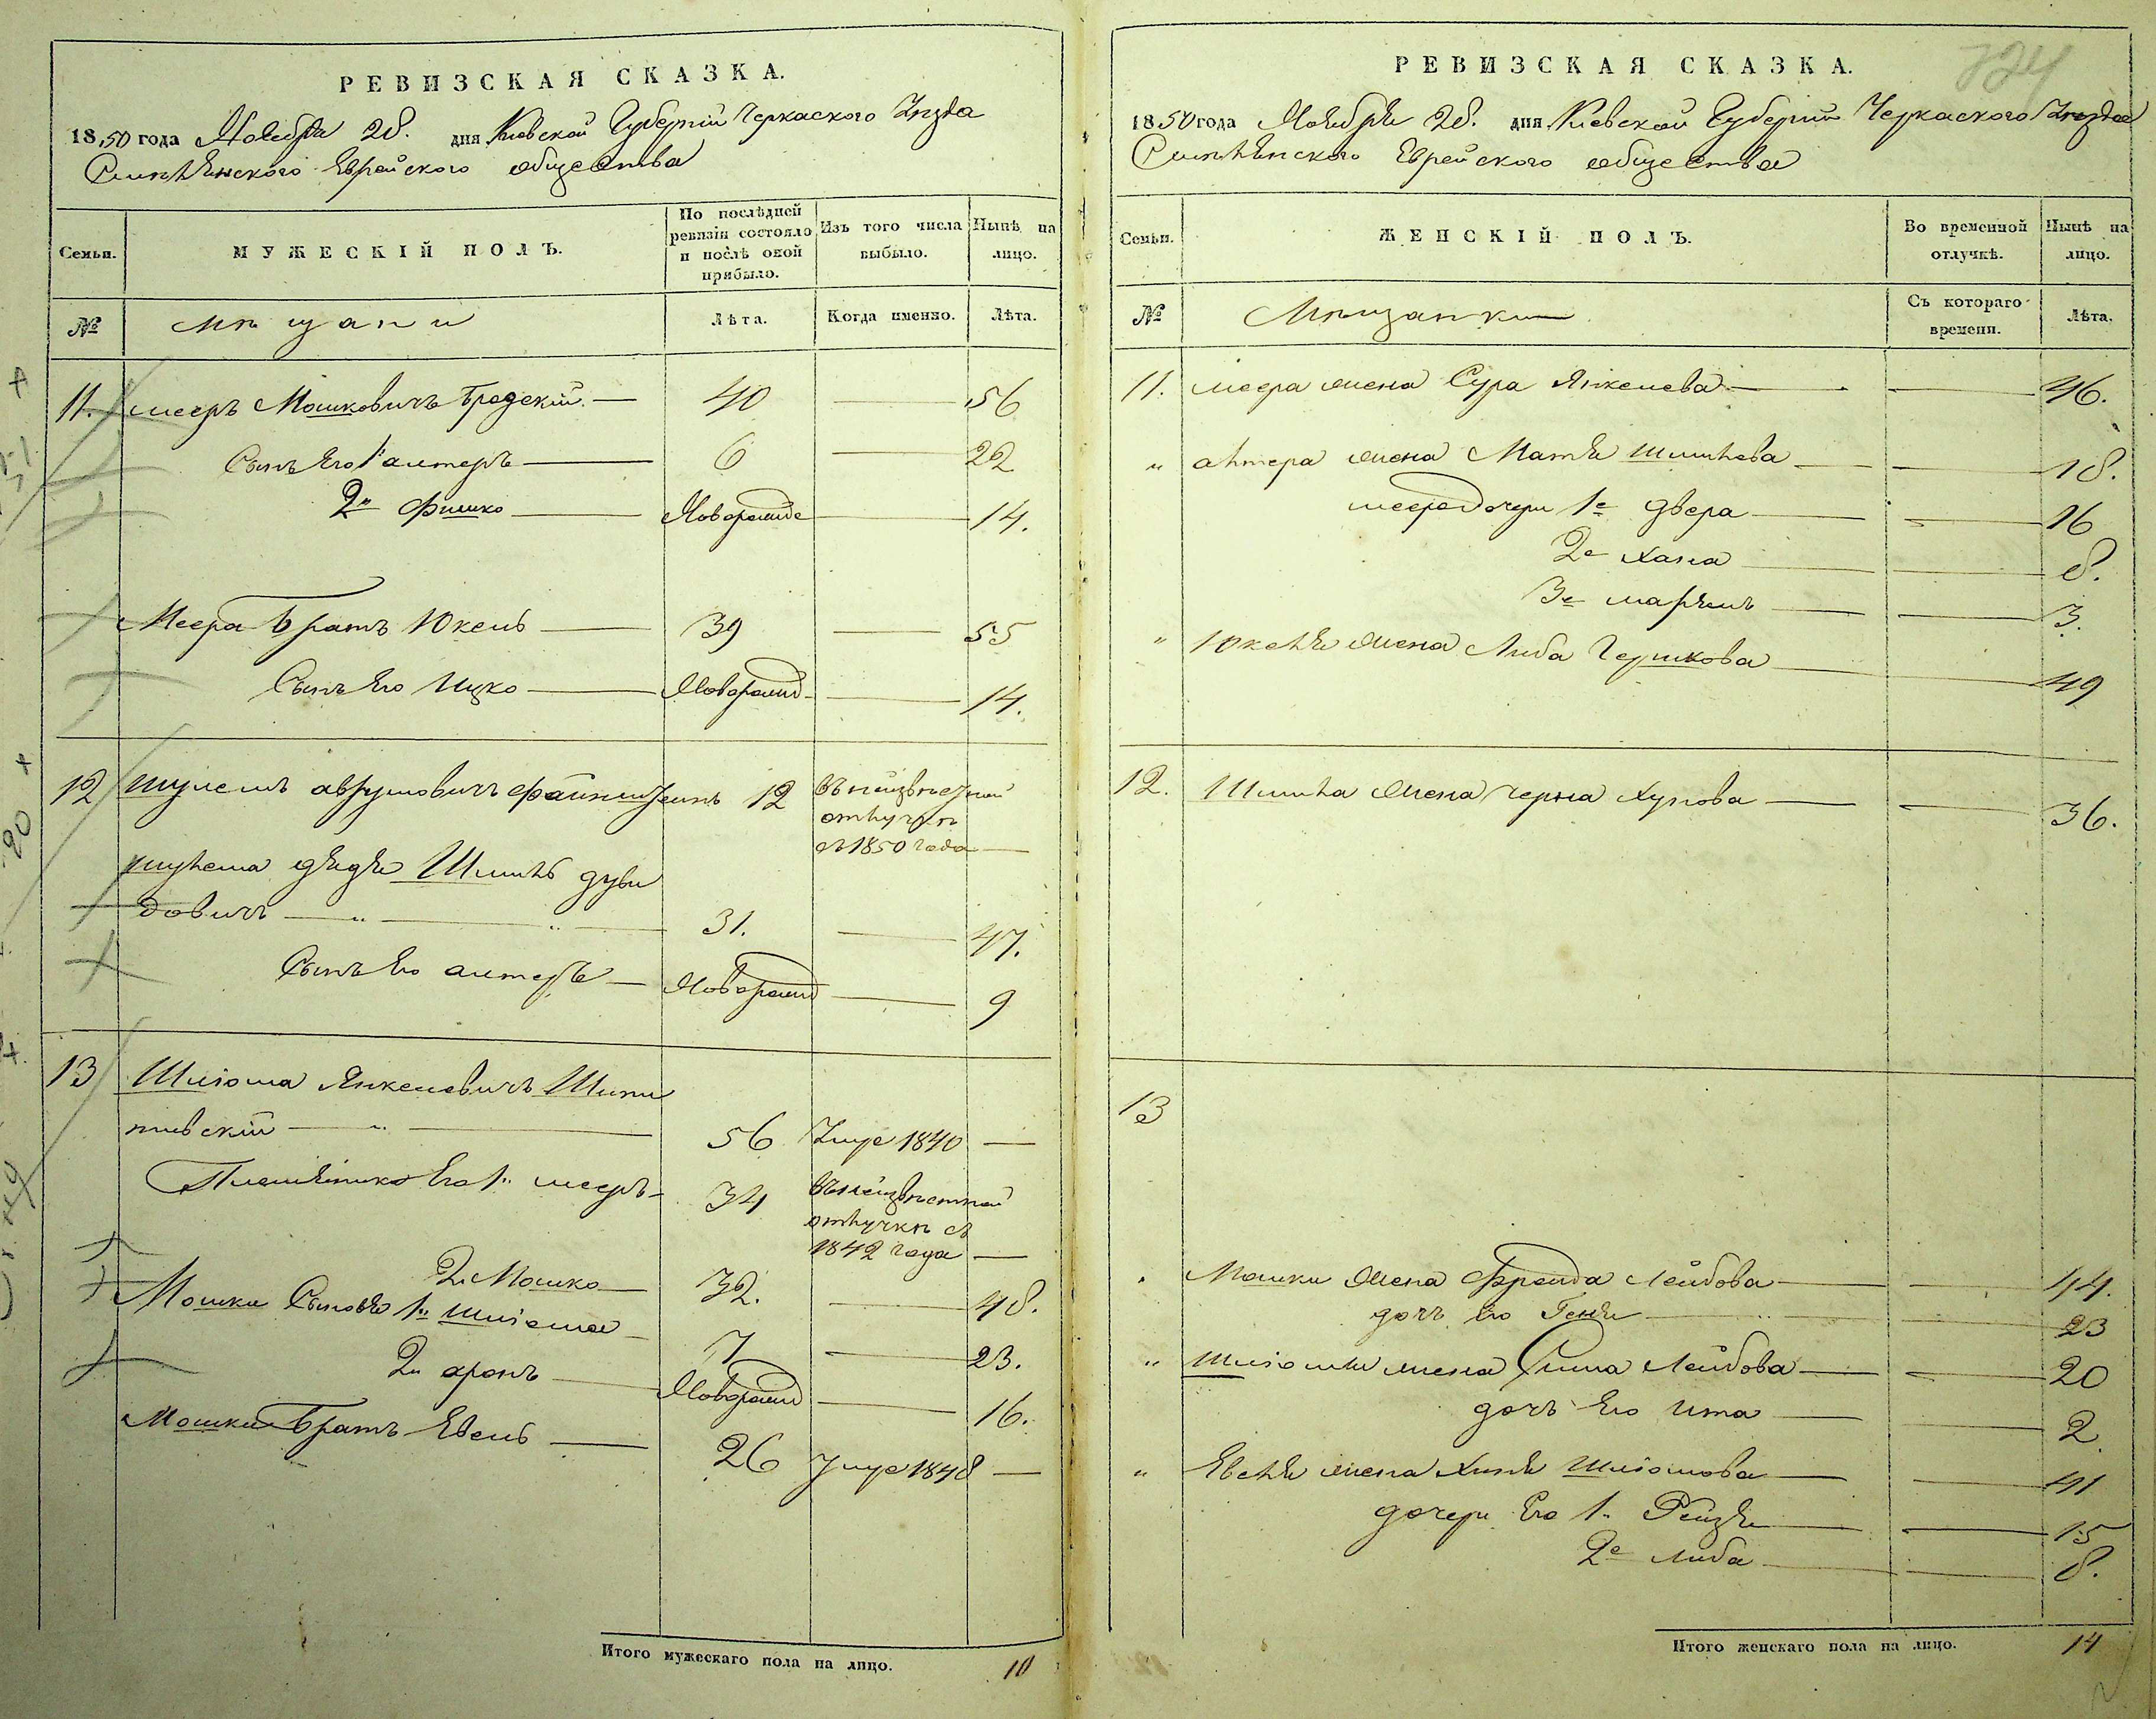 РЕВИЗСКАЯ СКАЗКА.
1850 года Ноября 28. дня Киевской Губернии Черкаского Уезда
Смелянского Еврейского общества
Семьи.
МУЖЕСКІЙ ПОЛЪ.
По послѣдней ревизіи состояло и послѣ оной прибыло.
Изъ того числа выбыло.
Нынѣ на лицо.
№
мѣщани
Лѣта.
Когда именно.
Лѣта.
11. мееръ Мошковичъ Бродскій. 40 56
Сынъ Его 1й алтеръ 6 22
2й Фишко Новорожде 14.
Меера Братъ Юкель 39 55
Сынъ Его Ицко Новорожд 14.
12 Шулемъ аврумовичъ 12 въ неизвестной
отлучке
съ 1850 года
шулема дядя Шмиль дуви
довичъ 31. 47.
Сынъ Его алтеръ Новорожд 9
13 Шлiома Янкелевичъ Шпи
56 Умре 1840
Племяннико Его 1й мееръ 34 въ неизвестной
отлучкѣ съ
1842 года
2й Мошко 32. 48.
Мошки Сыновья 1й Шлiома 7 23.
2й аронъ Новорожд 16.
Мошки Братъ Евель 26 Умре 1848
Итого мужескаго пола на лицо. 10
724
РЕВИЗСКАЯ СКАЗКА.
1850 года Ноября 28. дня Киевской Губернии Черкаского Уезда
Смелянского Еврейского общества
Семьи.
ЖЕНСКІЙ ПОЛЪ.
Во временной отлучкѣ.
Нынѣ на лицо.
№
Мѣщанки
Съ котораго времени.
Лѣта.
11. меера жена Сура Янкелева 46.
" алтера жена Матля Шмилева 18.
меера дочери 1е двера 16
2е хана 8.
3е марямъ 3.
" Юкеля жена Либа Гершкова 49
12. Шмиля жена черна 36.
13
Мошки жена Фрейда Лейбова 44.
дочъ Его Геня 23
" Шлiомы жена Сима Лейбова 20
дочъ Его Ита 2
" Евеля жена Хиня Шлiомова 41
дочери Его 1. Рейзя 15
2е либа 8.
Итого женскаго пола на лицо. 14